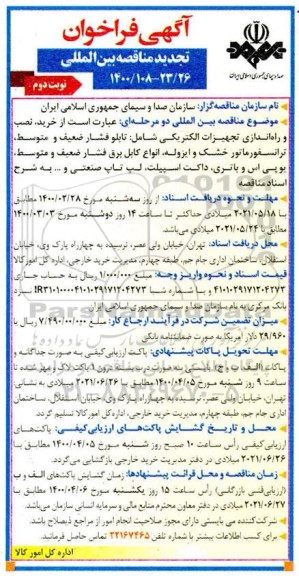 آگهی فراخوان
تجدید مناقصه بین المللی
۱۴۰۰/۱۰۸-۲۳/۲۶
نوبت دوم
صدا و سیمای جمهوری اسلامی ایران
نام سازمان مناقصه‌گزار: سازمان صدا و سیمای جمهوری اسلامی ایران
موضوع مناقصه بین المللی دو مرحله‌ای: عبارت است از خرید، نصب
و راه‌اندازی تجهیزات الکتریکی شامل: تابلو فشار ضعیف و متوسط،
ترانسفورماتور خشک و ایزوله، انواع کابل برق فشار ضعیف و متوسط،
یو پی اس و باتری، داکت اسپیلت، لپ تاپ صنعتی و ... به شرح
اسناد مناقصه
مهلت و نحوه دریافت اسناد: از روز سه‌شنبه مورخ ۱۴۰۰/۰۲/۲۸ مطابق
با ۲۰۲۱/۰۵/۱۸ میلادی حداکثر تا ساعت ۱۴ روز دوشنبه مورخ ۱۴۰۰/۰۳/۰۳
مطابق با ۲۰۲۱/۰۵/۲۴ میلادی می‌باشد.
محل دریافت اسناد: تهران، خیابان ولی عصر، نرسیده به چهارراه پارک وی، خیابان
استقلال، ساختمان اداری جام جم، طبقه چهارم، مدیریت خرید خارجی، اداره کل امور کالا
قیمت اسناد و نحوه واریز وجه: مبلغ ۱/۰۰۰/۰۰۰ ریال به حساب جاری
بانک مرکزی به نام سازمان صدا و سیمای جمهوری اسلامی ایران
میزان تضمین شرکت در فرآیند ارجاع کار: مبلغ ۷/۴۹۰/۰۰۰/۰۰۰ ریال یا
۲۹/۹۶۰ دلار آمریکا به صورت ضمانتنامه بانکی
مهلت تحویل پاکات پیشنهادی: پاکت ارزیابی کیفی به صورت جداگانه و
ساعت ۹ روز شنبه مورخ ۱۴۰۰/۰۴/۰۵ مطابق با ۲۰۲۱/۰۶/۲۶ میلادی به نشانی
تهران، خیابان ولی عصر، نرسیده به چهارراه پارک وی، خیابان استقلال، ساختمان
اداری جام جم، طبقه چهارم، مدیریت خرید خارجی، اداره کل امور کالا تسلیم گردد.
محل و تاریخ گشایش پاکت‌های ارزیابی‌کیفی: پاکت‌های
ارزیابی کیفی رأس ساعت ۱۰ صبح روز شنبه مورخ ۱۴۰۰/۰۴/۰۵ مطابق با
۲۰۲۱/۰۶/۲۶ میلادی در دفتر مدیریت خرید خارجی بازگشایی می‌گردد.
زمان مناقصه و محل قرائت پیشنهادها: زمان گشایش پاکت‌های الف و ب
(ارزیابی فنی بازرگانی) رأس ساعت ۱۵ روز یکشنبه مورخ ۱۴۰۰/۰۴/۰۶ مطابق با
۲۰۲۱/۰۶/۲۷ میلادی در دفتر معاون محترم منابع مالی و سرمایه انسانی سازمان می‌باشد.
شرکت‌کننده می بایستی دارای مجوز صلاحیت انجام امور از مراجع ذیصلاح باشد.
برای کسب اطلاعات بیشتر با شماره تلفن ۲۲۱۶۷۴۶۵ تماس حاصل فرمائید.
اداره کل امور کالا